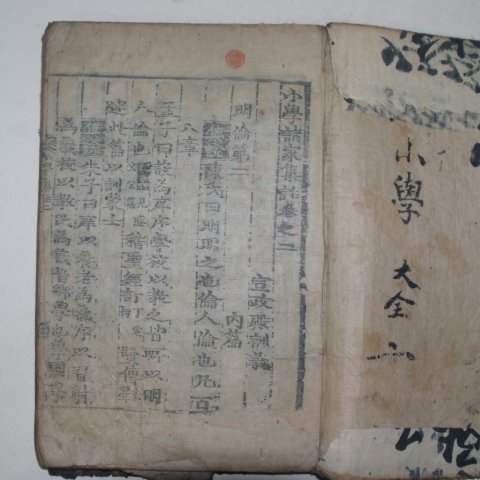 小學
大全
小學諸家集註卷之二
宣政殿訓義
明倫第二 內篇
陳氏曰明明之也倫人倫也凡百
八章
孟子曰設為庠序學校以教之皆所以明
人倫也 稽聖經訂 賢傳
述此篇以訓蒙士
朱子曰庠以養老為義序以習射
為義校以教民為義皆鄉學也學國學